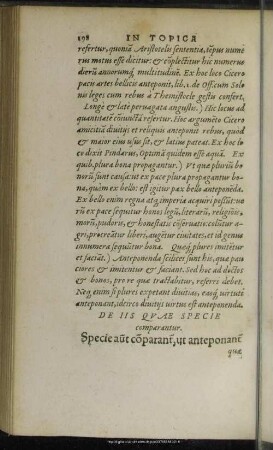 198 IN TOPICA
refertur, quoniā Aristotelis sententia, tēpus nume
rus motus esse dicitur: & cōplectitur hic numerus
dierū annorumq́; multitudinē. Ex hoc loco Cicero
pacis artes bellicis anteponit, lib. 1. de Officijs Solo
nis leges cum rebus à Themistocle gestis confert.
Longè & latè peruagata angustis.) Hic locus ad
quantitatē cōiunctā refertur. Hoc argumēto Cicero
amicitiā diuitijs et reliquis anteponit rebus, quòd
& maior eius usus sit, & latius pateat. Ex hoc lo
co dixit Pindarus, Optimā quidem esse aquā. Ex
quib. plura bona propagantur.) Vt quæ plurium bo
norū sunt causæ: ut ex pace plura propagantur bo
na, quàm ex bello: est igitur pax bello anteponēda.
Ex bello enim regna atq; imperia acquiri possūt: ue
rū ex pace sequitur honos legū, literarū, religiōis,
morū, pudoris, & honestatis cōseruatio: coluntur a-
gri, procreātur liberi, augētur ciuitates, et id genus
innumera sequūtur bona. Quæq́; plures imitētur
et faciāt.) Anteponenda scilicet sunt his, quæ pau
ciores & imitentur & faciant. Sed hoc ad doctos
& bonos, pro re quæ tractabitur, referri debet.
Neq; enim si plures expetant diuitias, easq́; uirtuti
anteponant, idcirco diuitijs uirtus est anteponenda.
DE IIS QVAE SPECIE
comparantur.
Specie aūt cōparant͛, ut anteponant͛
quæ